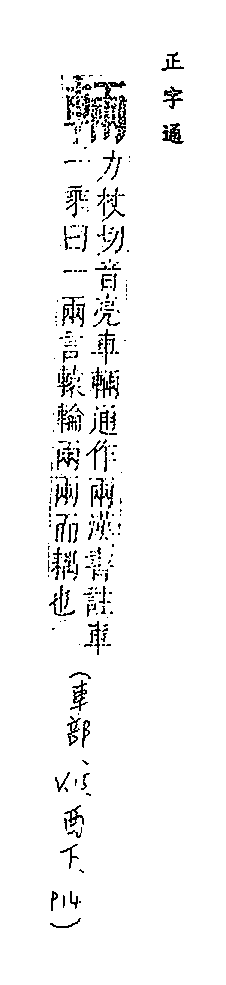 正字通
輛
力杖切音亮車輛通作兩漢書註車
一乘曰一兩言轅輪兩兩而耦也
(車部、V.15、酉下、P14)